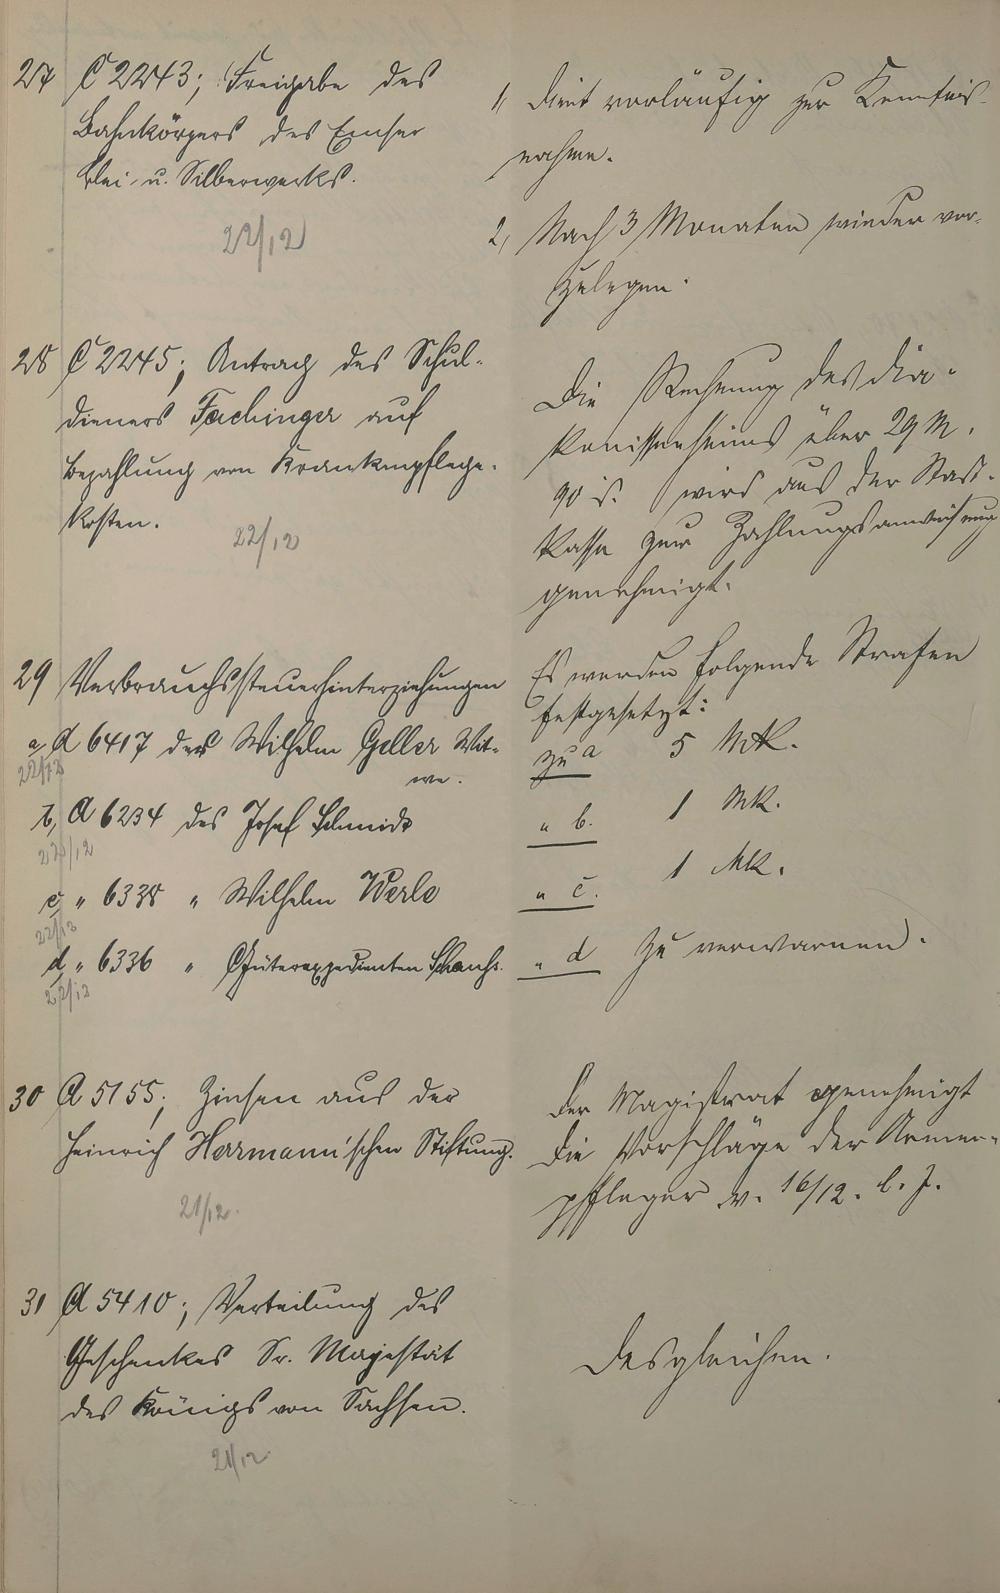 27 C 2243; Freigabe des
Bahnkörpers des Emser
Blei- u. Silberwerks.
22/12
1, Dient vorläufig zur Kenntnis-
nahme.
2, Nach 3 Monaten wieder vor-
zulegen.
28 C 2245; Antrag des Schul-
dieners Fachinger auf
Bezahlung von Krankenpflege-
kosten.
22/12
Die Rechnung des Dia-
konissenheims über 29 M.
90 wird aus der Stadt-
kasse zur Zahlungsanweisung
genehmigt.
29 Verbrauchssteuerhinterziehungen
a, A 6417 der Wilhelm Geller Wit-
we.
22/12
b, A 6234 des Josef Schmidt
22/12
c, " 6338 " Wilhelm Werle
22/12
d, " 6336 " Güterexpedienten
22/12
Es werden folgende Strafen
festgesetzt:
zu a 5 Mk.
" b. 1 Mk.
" c. 1 Mk.
" d zu verwarnen.
30 A 5155; Zinsen aus der
Heinrich Herrmann'schen Stiftung.
21/12.
Der Magistrat genehmigt
die Vorschläge der Armen-
pfleger v. 16/12. l. J.
31 A 5410; Verteilung des
Geschenkes Sr. Majestät
des Königs von Sachsen.
21/12
Desgleichen.